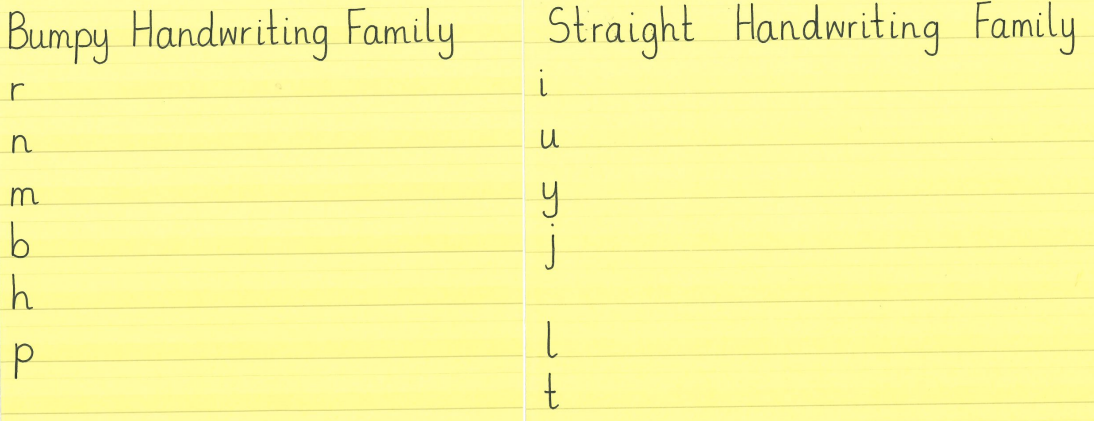 Bumpy Handwriting Family
r
n
m
b
h
p
Straight Handwriting Family
i
u
y
j
l
t